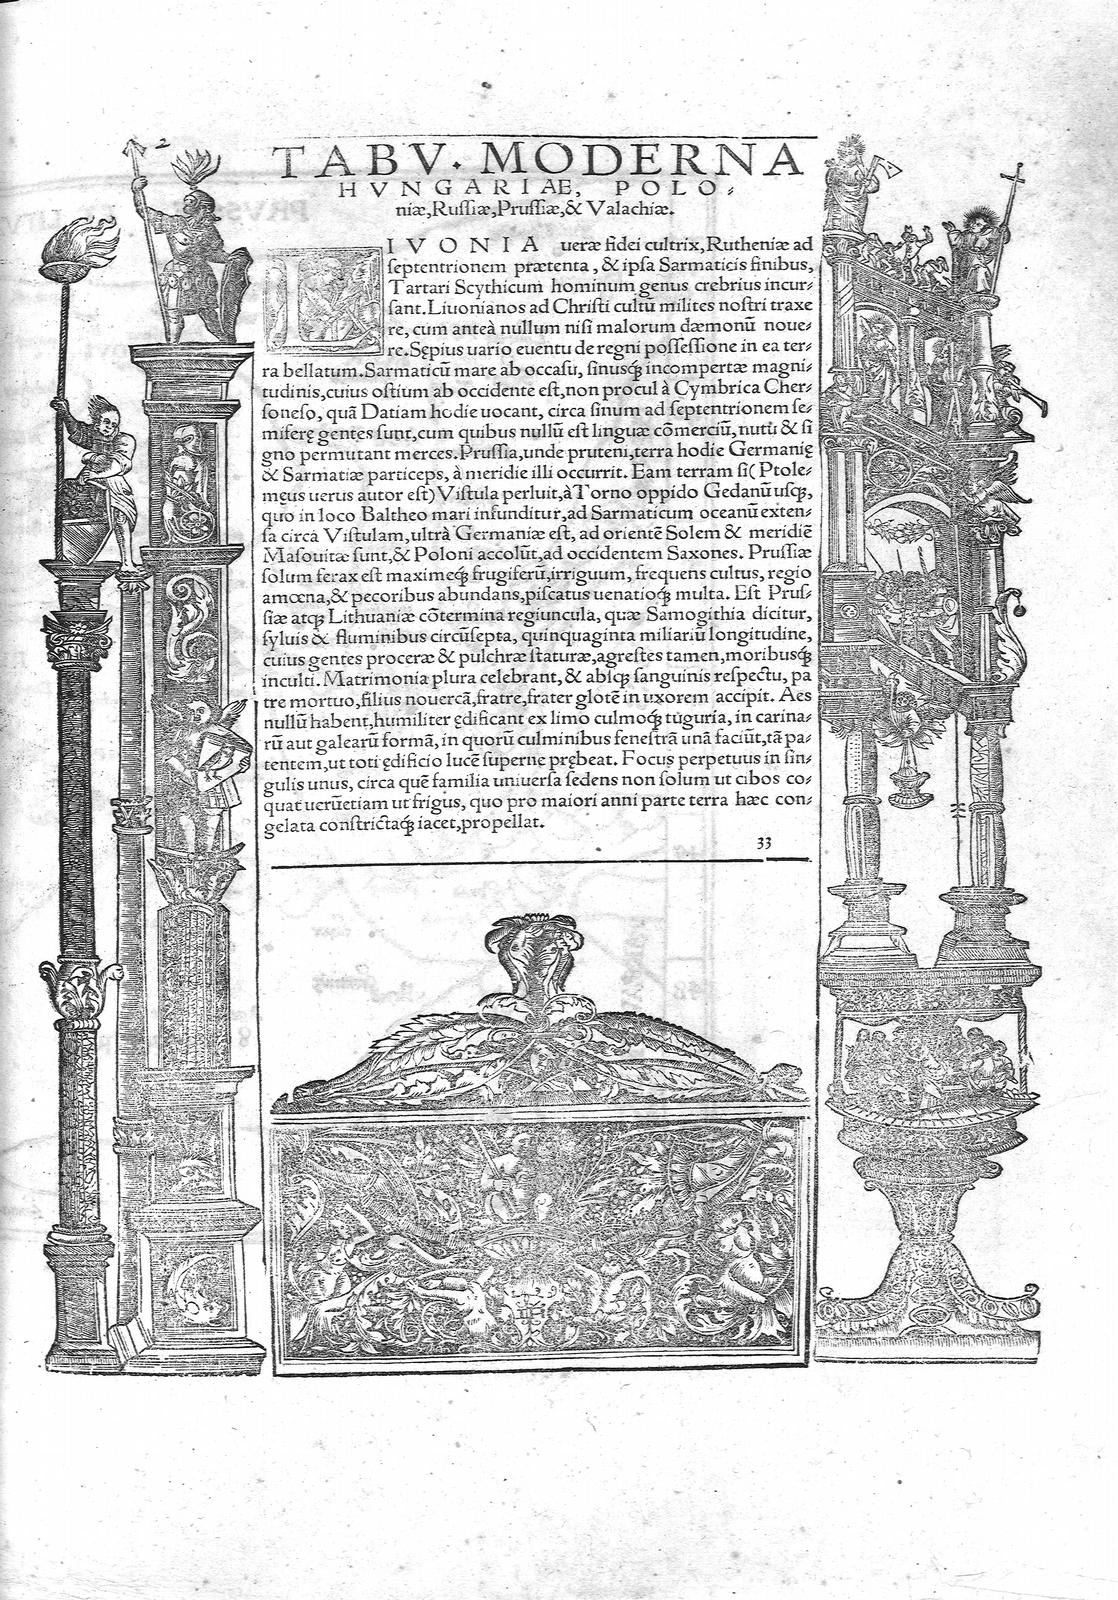 2
TABV. MODERNA
HVNGARIAE, POLO⸗
niæ, Ruſſiæ, Pruſſiæ, & Valachiæ.
LIVONIA ueræ fidei cultrix, Rutheniæ ad
ſeptentrionem prætenta, & ipſa Sarmaticis finibus,
Tartari Scythicum hominum genus crebrius incur⸗
ſant. Liuonianos ad Chriſti cultū milites noſtri traxe
re, cum anteà nullum niſi malorum dæmonū noue⸗
re. Sępius uario euentu de regni poſſeſſione in ea ter⸗
ra bellatum. Sarmaticū mare ab occaſu, ſinusq; incompertæ magni⸗
tudinis, cuius oſtium ab occidente eſt, non procul à Cymbrica Cher⸗
ſoneſo, quā Datiam hodie uocant, circa ſinum ad ſeptentrionem ſe⸗
miferę gentes ſunt, cum quibus nullū eſt linguæ cōmerciū, nutu & ſi
gno permutant merces. Pruſſia, unde pruteni, terra hodie Germanię
& Sarmatiæ particeps, à meridie illi occurrit. Eam terram ſi (Ptole⸗
męus uerus autor eſt) Viſtula perluit, à Torno oppido Gedanū uſq;,
quo in loco Baltheo mari infunditur, ad Sarmaticum oceanū exten⸗
ſa circà Viſtulam, ultrà Germaniæ eſt, ad orientē Solem & meridiē
Maſouitæ ſunt, & Poloni accolūt, ad occidentem Saxones. Pruſſiæ
ſolum ferax eſt maximeq; frugiferū, irriguum, frequens cultus, regio
amœna, & pecoribus abundans, piſcatus uenatioq; multa. Eſt Pruſ⸗
ſiæ atq; Lithuaniæ cōtermina regiuncula, quæ Samogithia dicitur,
ſyluis & fluminibus circūſepta, quinquaginta miliariū longitudine,
cuius gentes proceræ & pulchræ ſtaturæ, agreſtes tamen, moribusq;
inculti. Matrimonia plura celebrant, & abſq; ſanguinis reſpectu, pa
tre mortuo, filius nouercā, fratre, frater glotē in uxorem accipit. Aes
nullū habent, humiliter ędificant ex limo culmoq; tuguria, in carina⸗
rū aut galearū formā, in quorū culminibus feneſtrā unā faciūt, tā pa⸗
tentem, ut toti ędificio lucē ſuperne prębeat. Focus perpetuus in ſin⸗
gulis unus, circa quē familia uniuerſa ſedens non ſolum ut cibos co⸗
quat uerūetiam ut frigus, quo pro maiori anni parte terra hæc con⸗
gelata conſtrictaq; iacet, propellat.
33